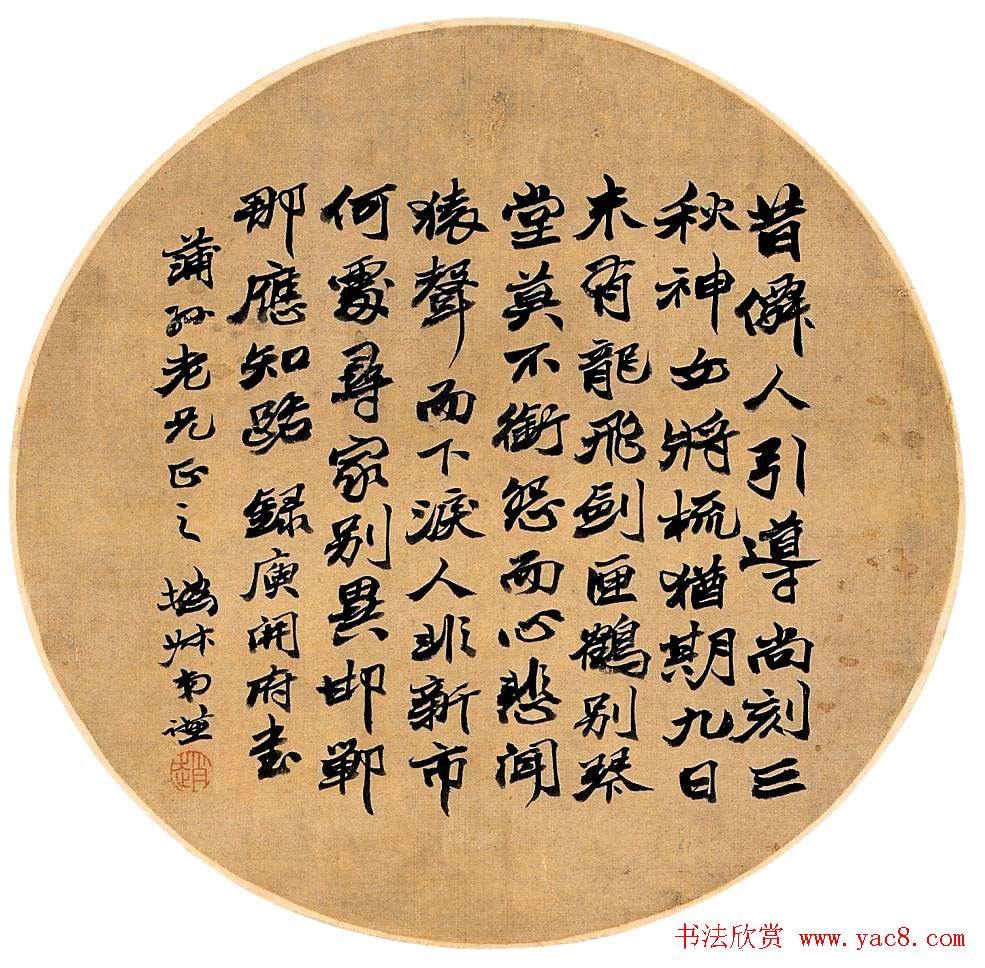 昔僊人引導尚刻三
秋神女將梳猶期九日
未有龍飛劍匣鶴別琴
堂莫不銜怨而心悲聞
猿聲而下淚人非新市
何處尋家別異邯鄲
那應知路 錄庾開府書
蒲孫老兄正之 撝叔弟謙
书法欣赏 www.yac8.com